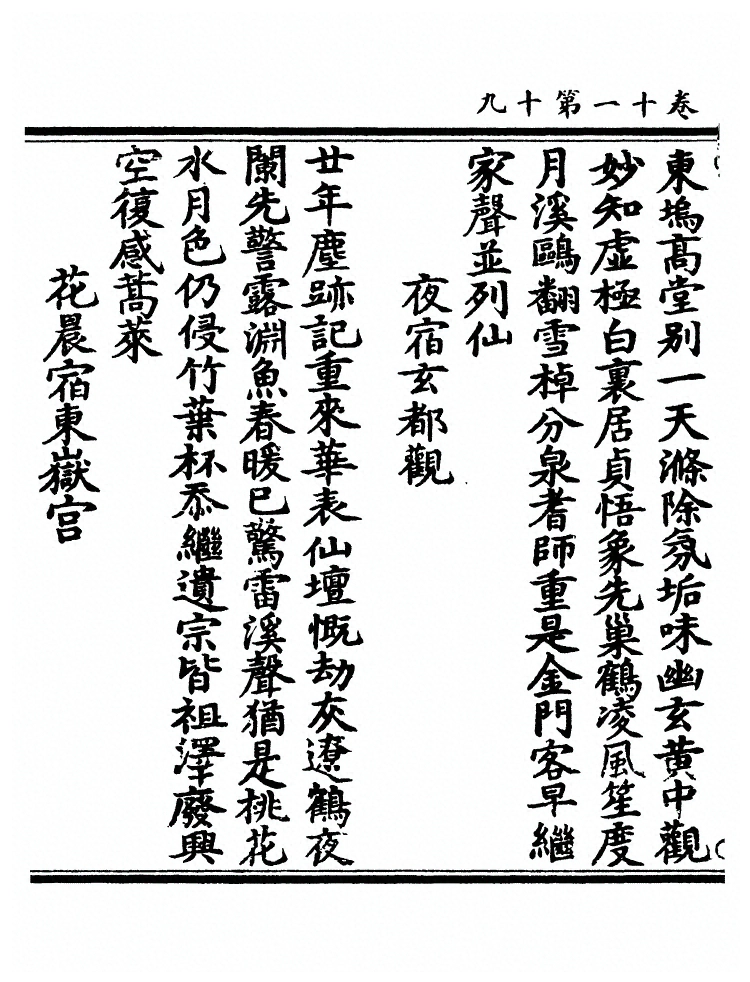 卷十一第十九
東塢高堂别一天滌除氛垢味幽玄黄中觀
妙知虚極白裏居貞悟象先巢鶴凌風笙度
月溪鷗翻雪棹分泉耆師重是金門客早繼
家聲並列仙
夜宿玄都觀
廿年塵跡記重來華表仙壇慨劫灰遼鶴夜
闌先警露淵魚春暖已驚雷溪聲猶是桃花
水月色仍侵竹葉杯忝繼遺宗皆祖澤廢興
空復感蒿萊
花晨宿東嶽宫